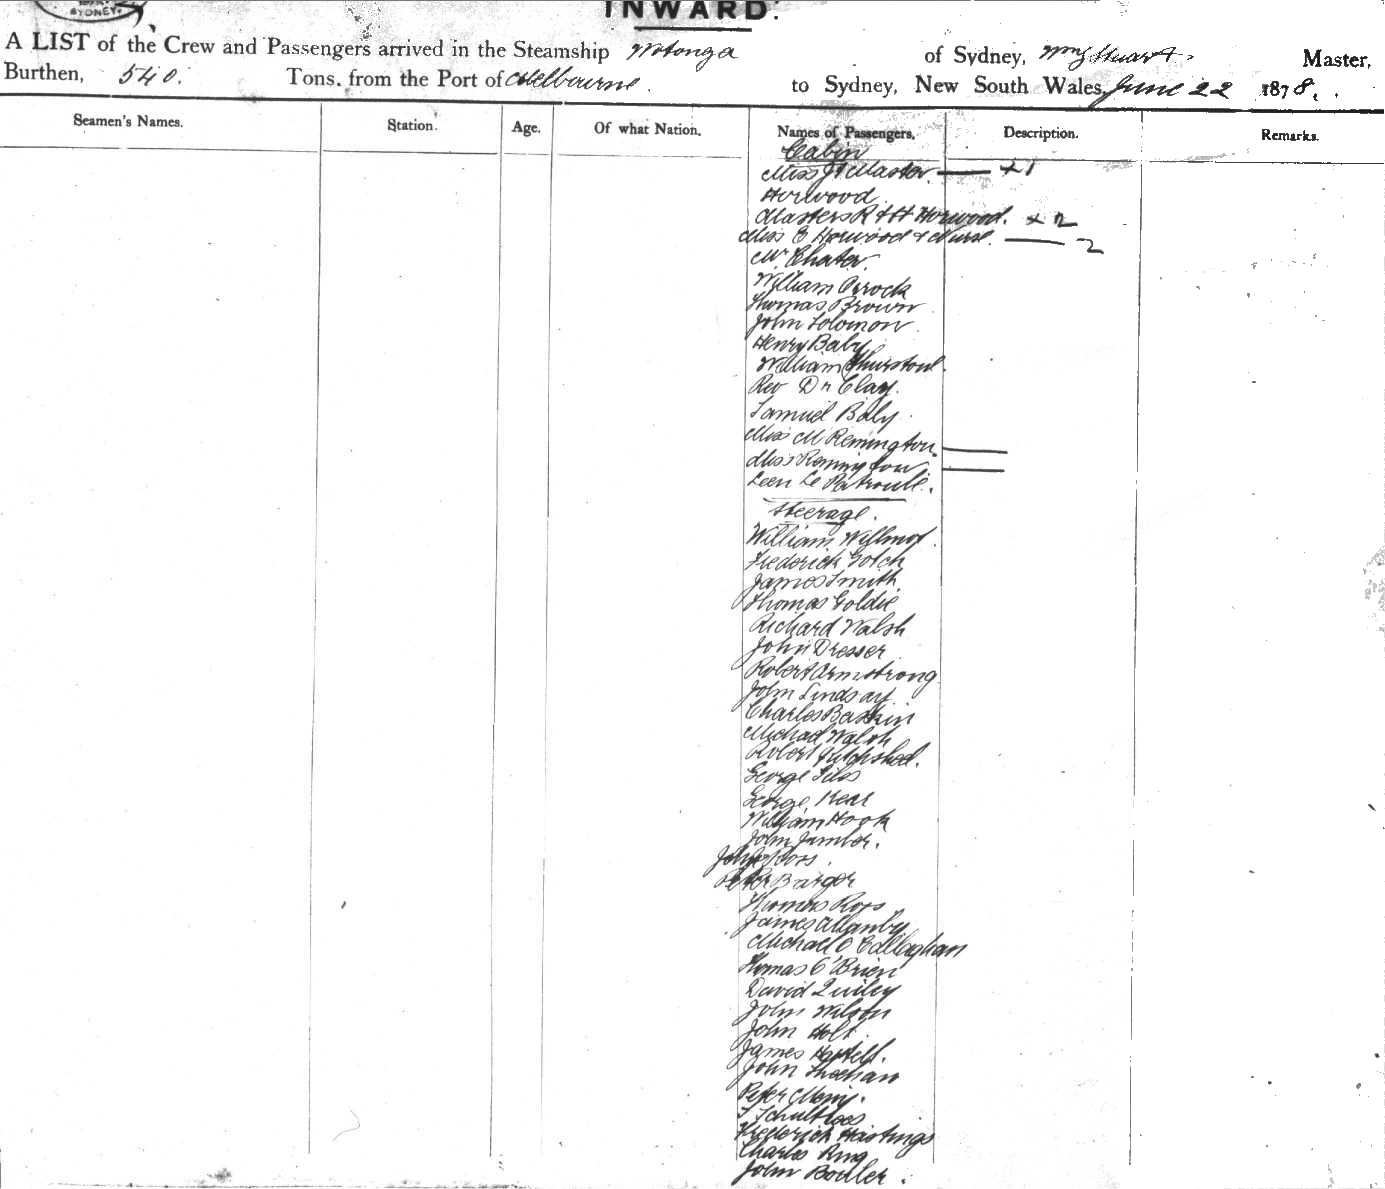 SYDNEY.
INWARD.
A LIST of the Crew and Passengers arrived in the Steamship Wotonga of Sydney, Wm Stuart. Master,
Burthen, 540. Tons. from the Port of Melbourne. to Sydney, New South Wales, June 22 1878.
Seamen's Names. Station. Age. Of what Nation. Names of Passengers. Description. Remarks.
Cabin
Miss Master. x 1
Horwood
Masters R & H Horwood. x 2
Miss E Horwood & Nurse. 2
Mr Chater.
William Orrock
Thomas Brown
John Solomon
Henry Baly
William
Rev Dr Clay.
Samuel Baly.
Miss M Remington
Miss Remington
Leon Le
Steerage.
William Willmot
Frederick Gotch
James Smith
Thomas Goldie
Richard Walsh
John Dresser
Robert Armstrong
John Lindsay
Charles Baskin
Michael Walsh
Robert
George Silss
George Kear
William Hook
John
John
Peter Barger
Thomas Ross
James Allanby
Michael O Callaghan
Thomas O'Brien
David Quiley
John Wilson
John Holt.
James
John Sheehan
Peter
F
Frederick Hastings
Charles Ring
John Bouler.